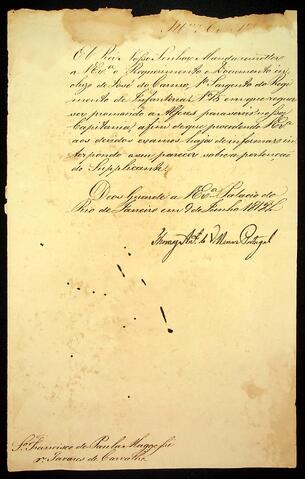 Ill.mo e Ex.mo Sn.r
El Rei Nosso Senhor Manda remetter
a V. Ex.a o Requerimento e Documento in-
cluzo de José do Carmo, 1.o Sargento do Regi-
mento de Infantaria N.o 15 em que requer
ser promovido a Alferes para servir nessa
Capitania, a fim de que procedendo V. Ex.a
aos devidos exames haja de informar in-
terpondo o seu parecer sobre a pertenção
do Supplicante.
Deos Guarde a V. Ex.a Palacio do
Rio de Janeiro em 9 de Junho
Thomaz Ant.o de Villanova Portugal
S.r Francisco de Paula Magessi
Tavares de Carvalho